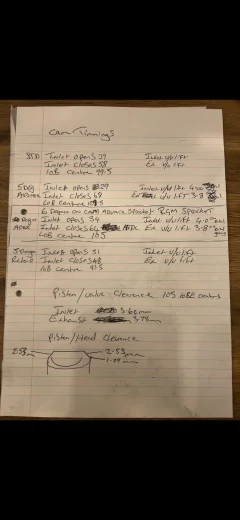 Cam Timmings
STD Inlet opens 29 Inlet v/v lift
Inlet closes 58 Ex v/v lift
LOB centre 99.5
5 Deg Inlet opens 29 Inlet v/v lift
Advance Inlet closes 68 Ex v/v lift 3.8
LOB centre
6 Degree on cam Advance sprocket RGM Sprocket
Degree Inlet opens 34 Inlet v/v lift 4.0
Inlet closes 64 ABDC Ex v/v lift 3.8
LOB centre 105
Inlet opens 51 Inlet v/v lift
Retard Inlet closes 48 Ex v/v lift
LOB centre 91.5
Piston/valve Clearance 105 LOBE centres
Inlet 3.60mm
Exhaust 3.79mm
Piston/Head Clearance
2.53 2.53mm